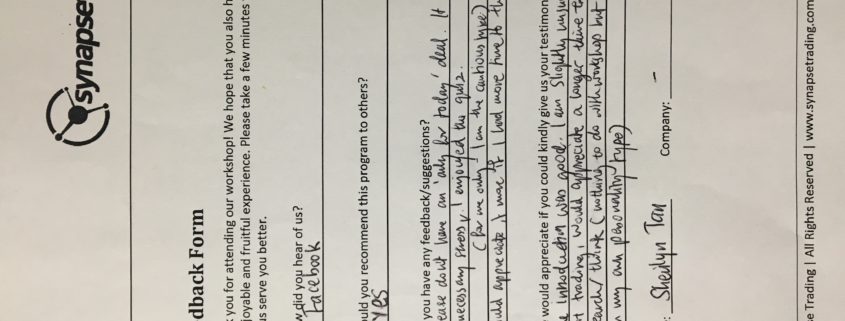 synapse
dback Form
you for attending our workshop! We hope that you also h
joyable and fruitful experience. Please take a few minutes
us serve you better.
w did you hear of us?
Facebook
ould you recommend this program to others?
Yes
you have any feedback/suggestions?
ease don't have an 'only for today' deal. It
necessary stress, I enjoyed the quiz.
(for me only, I am the cautious type)
uld appreciate it more if I had more time to th
would appreciate if you could kindly give us your testimon
e introduction was good. I am slightly unsu
t trading, I would appreciate a longer time t
earch/think (nothing to do with workshop but
my own personality type)
: Sheilyn Tan Company: -
e Trading | All Rights Reserved | www.synapsetrading.com